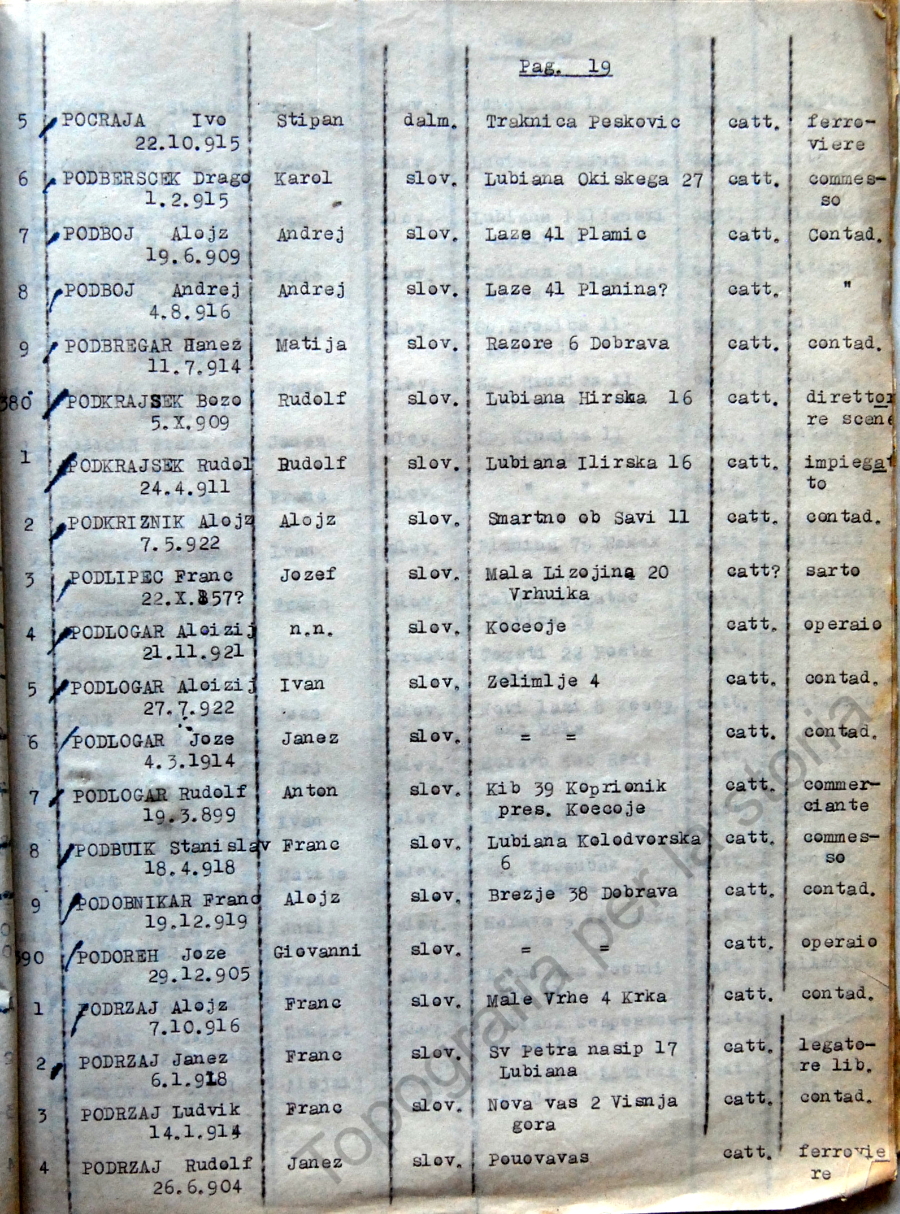 Pag. 19
5 POCRAJA Ivo Stipan dalm. Traknica Peskovic catt. ferro-
22.10.915 viere
6 PODBERSCEK Drago Karol slov. Lubiana Okiskega 27 catt. commes-
1.2.915 so
7 PODBOJ Alojz Andrej slov. Laze 41 Plamic catt. Contad.
19.6.909
8 PODBOJ Andrej Andrej slov. Laze 41 Planina? catt. "
4.8.916
9 PODBREGAR Hanez Matija slov. Razore 6 Dobrava catt. contad.
11.7.914
380 PODKRAJSEK Bozo Rudolf slov. Lubiana Hirska 16 catt. direttor
5.X.909 re scene
1 PODKRAJSEK Rudol Rudolf slov. Lubiana Ilirska 16 catt. impiegat
24.4.911 to
2 PODKRIZNIK Alojz Alojz slov. Smartno ob Savi 11 catt. contad.
7.5.922
3 PODLIPEC Franc Jozef slov. Mala Lizojina 20 catt? sarto
22.X.857? Vrhuika
4 PODLOGAR Aloizij n.n. slov. Koceoje catt. operaio
21.11.921
5 PODLOGAR Aloizij Ivan slov. Zelimlje 4 catt. contad.
27.7.922
6 PODLOGAR Joze Janez slov. = = catt. contad.
4.3.1914
7 PODLOGAR Rudolf Anton slov. Kib 39 Koprionik catt. commer-
19.3.899 pres. Koecoje ciante
8 PODBUIK Stanislav Franc slov. Lubiana Kolodvorska catt. commes-
18.4.918 6 so
9 PODOBNIKAR Franc Alojz slov. Brezje 38 Dobrava catt. contad.
19.12.919
390 PODOREH Joze Giovanni slov. = = catt. operaio
29.12.905
1 PODRZAJ Alojz Franc slov. Male Vrhe 4 Krka catt. contad.
7.10.916
2 PODRZAJ Janez Franc slov. Sv Petra nasip 17 catt. legato-
6.1.918 Lubiana re lib.
3 PODRZAJ Ludvik Franc slov. Nova vas 2 Visnja catt. contad.
14.1.914 gora
4 PODRZAJ Rudolf Janez slov. Pouovavas catt. ferrovie
26.6.904 re
Topografia per la storia